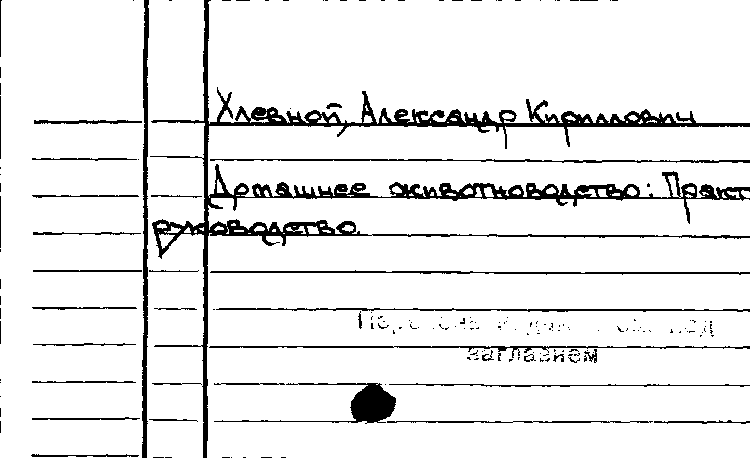 Хлевной, Александр Кириллович
Домашнее животноводство: Практ
руководство.
под
заглавием